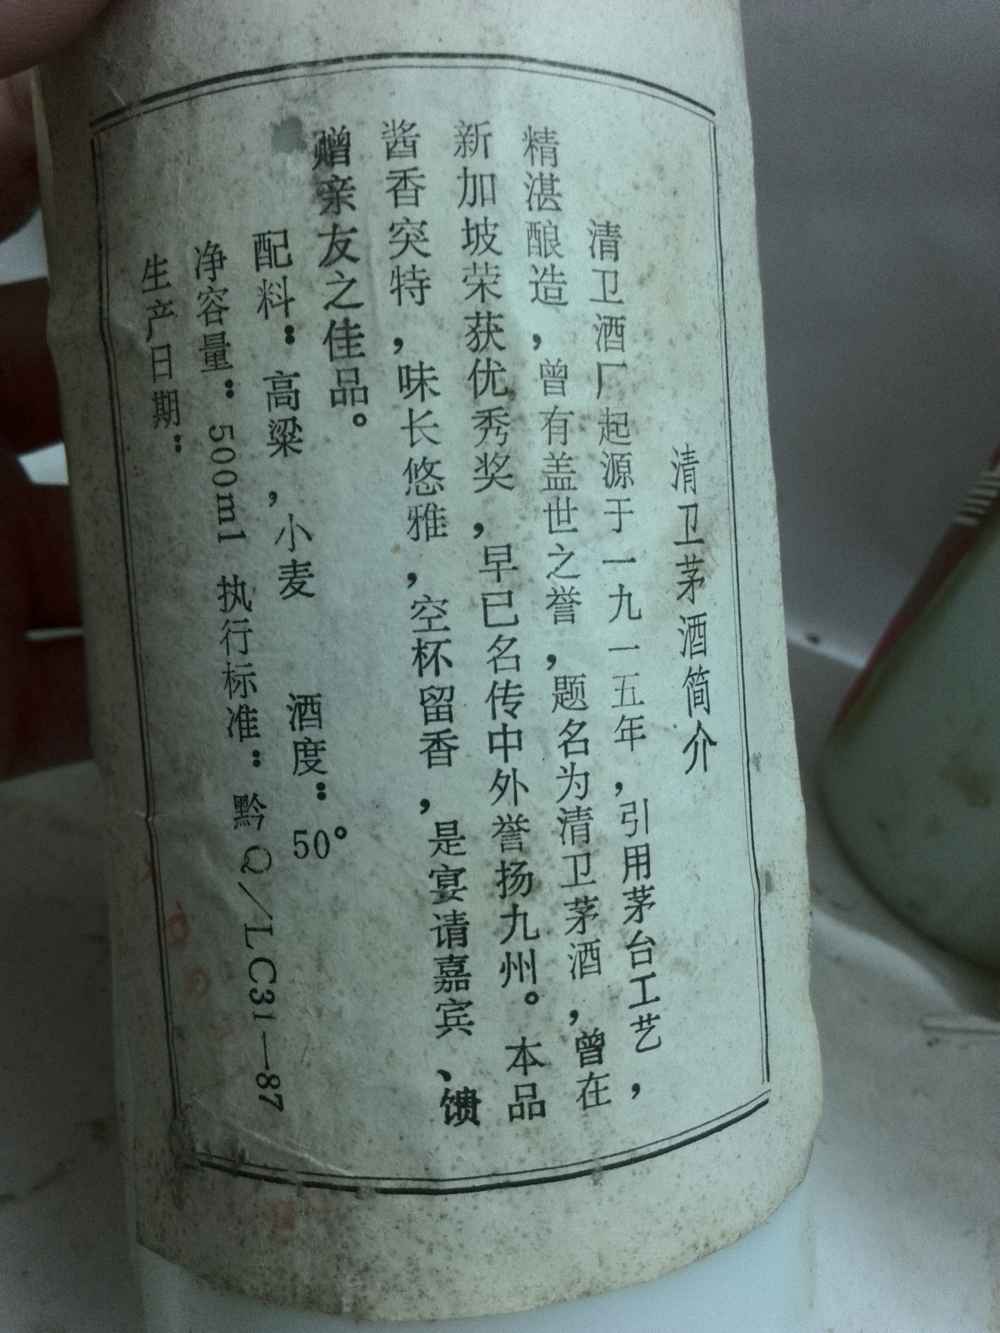 清卫茅酒简介
清卫酒厂起源于一九一五年，引用茅台工艺，
精湛酿造，曾有盖世之誉，题名为清卫茅酒，曾在
新加坡荣获优秀奖，早已名传中外誉扬九州。本品
酱香突特，味长悠雅，空杯留香，是宴请嘉宾、馈
赠亲友之佳品。
配料：高粱，小麦 酒度：50°
净容量：500ml 执行标准：黔Q/LC31—87
生产日期：